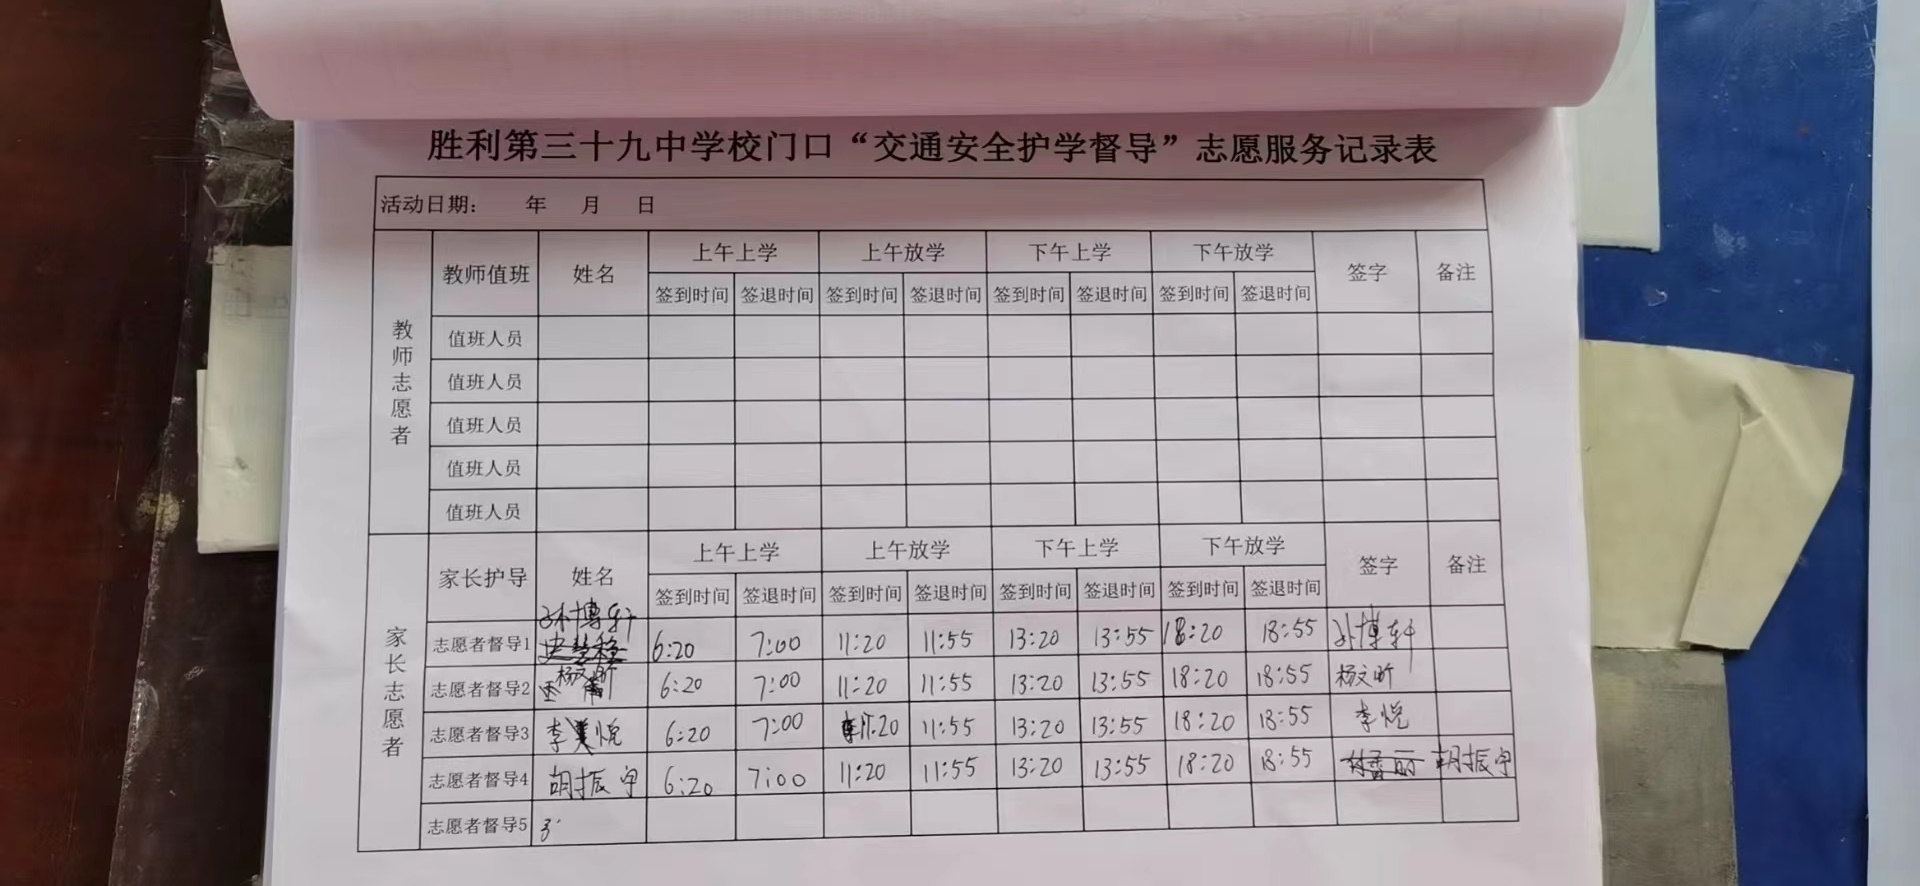 胜利第三十九中学校门口“交通安全护学督导”志愿服务记录表
活动日期： 年 月 日
教师志愿者
教师值班 姓名 上午上学 上午放学 下午上学 下午放学 签字 备注
签到时间 签退时间 签到时间 签退时间 签到时间 签退时间 签到时间 签退时间
值班人员
值班人员
值班人员
值班人员
值班人员
家长志愿者
家长护导 姓名 上午上学 上午放学 下午上学 下午放学 签字 备注
签到时间 签退时间 签到时间 签退时间 签到时间 签退时间 签到时间 签退时间
志愿者督导1 孙博轩 6:20 7:00 11:20 11:55 13:20 13:55 18:20 18:55 孙博轩
志愿者督导2 杨文昕 6:20 7:00 11:20 11:55 13:20 13:55 18:20 18:55 杨文昕
志愿者督导3 李悦 6:20 7:00 11:20 11:55 13:20 13:55 18:20 18:55 李悦
志愿者督导4 胡振宇 6:20 7:00 11:20 11:55 13:20 13:55 18:20 18:55 胡振宇
志愿者督导5